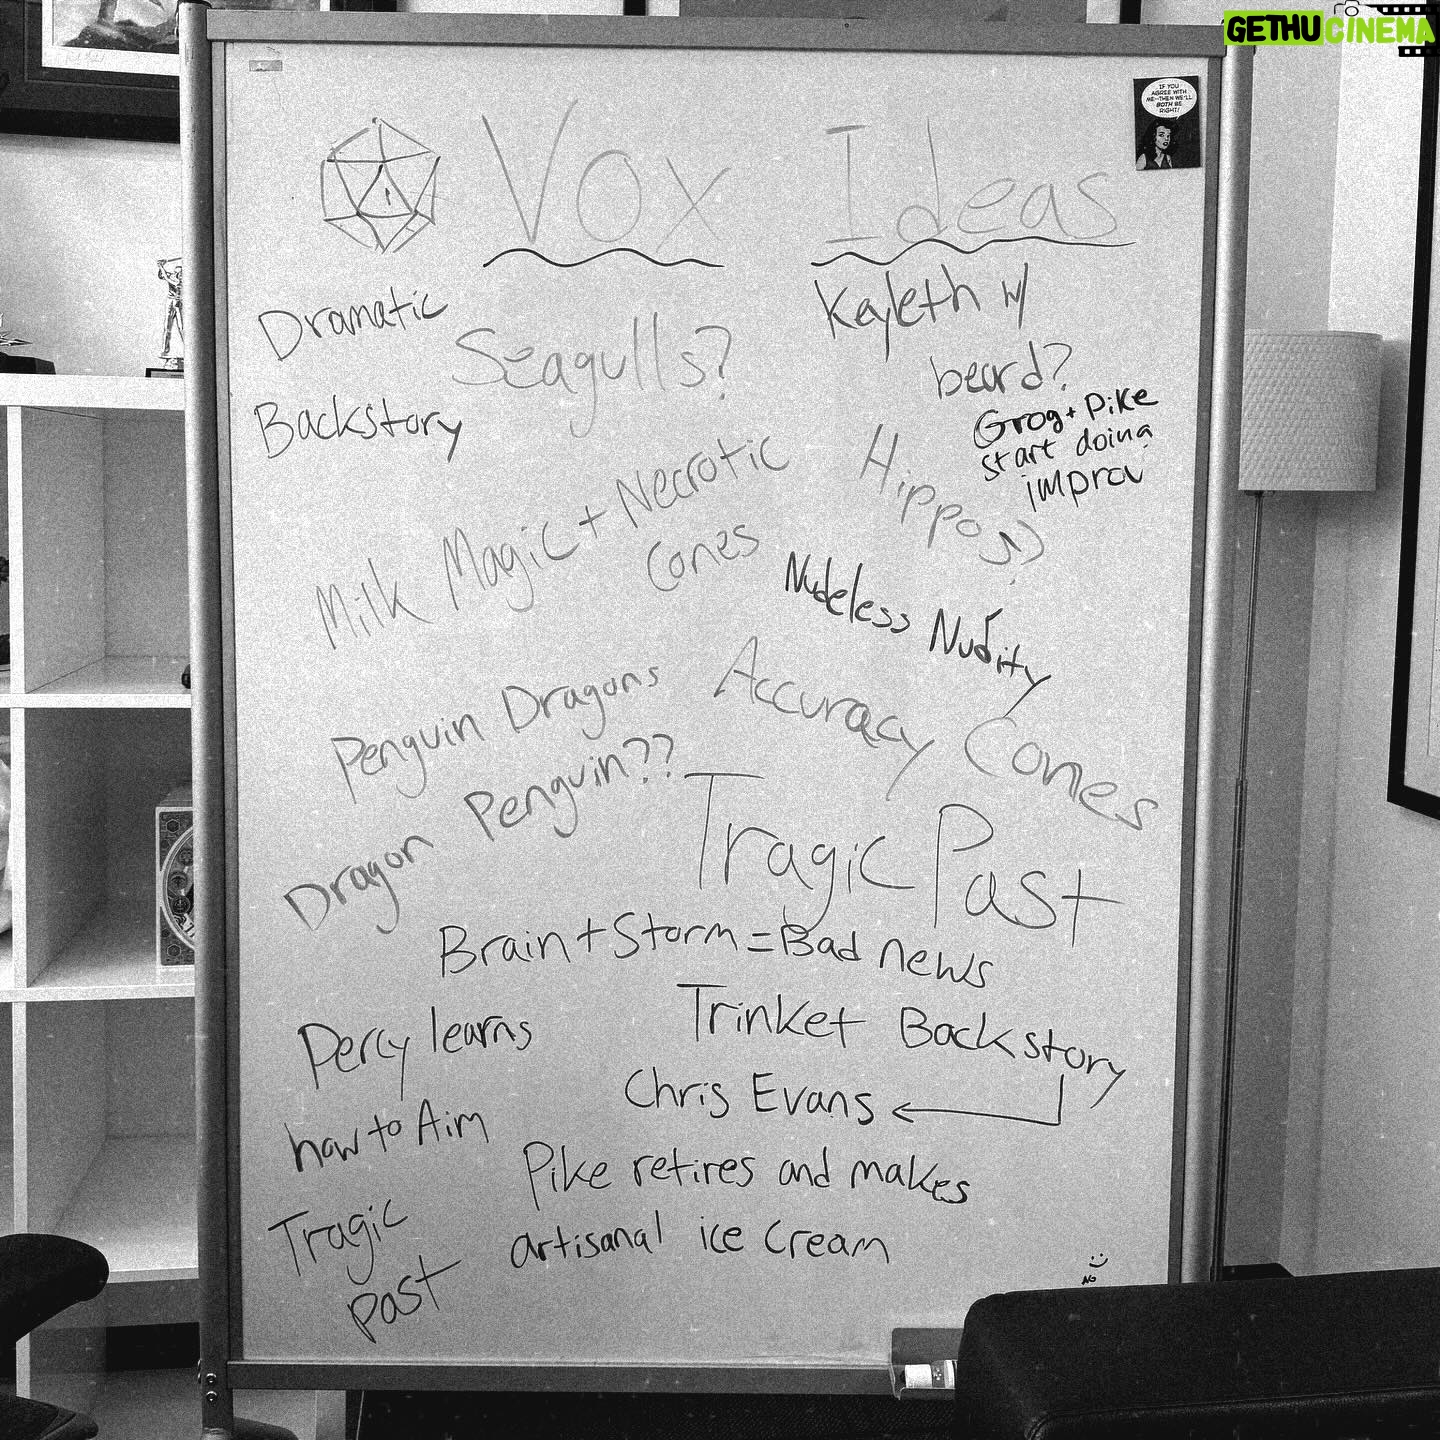 GETHUCINEMA
IF YOU
AGREE WITH
ME--THEN WE'LL
BOTH BE
RIGHT!
1
Vox Ideas
Dramatic
Backstory
Seagulls?
Kayleth w/
beard?
Grog + Pike
start doing
improv
Hippos?
Milk Magic + Necrotic
Cones
Nudeless Nudity
Accuracy Cones
Penguin Dragons
Dragon Penguin??
Tragic Past
Brain + Storm = Bad news
Trinket Backstory
Chris Evans
Percy learns
how to Aim
Pike retires and makes
artisanal ice cream
Tragic
past
NO